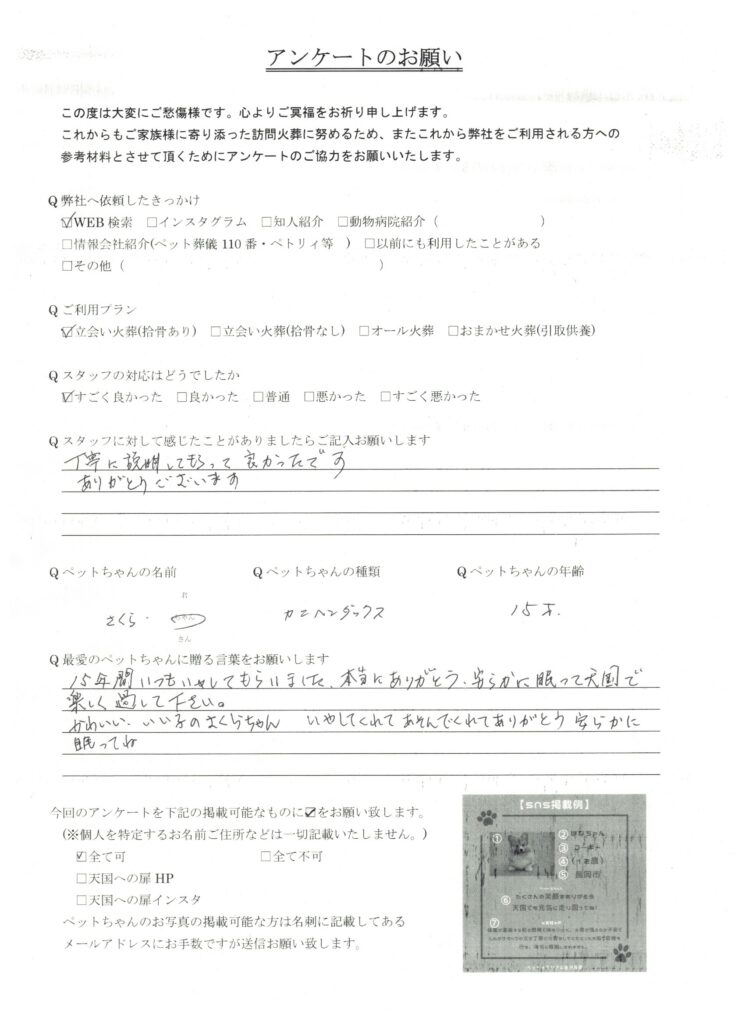 アンケートのお願い
この度は大変にご愁傷様です。心よりご冥福をお祈り申し上げます。
これからもご家族様に寄り添った訪問火葬に努めるため、またこれから弊社をご利用される方への
参考材料とさせて頂くためにアンケートのご協力をお願いいたします。
Q 弊社へ依頼したきっかけ
☑WEB 検索 □インスタグラム □知人紹介 □動物病院紹介（ ）
□情報会社紹介(ペット葬儀 110 番・ペトリィ等 ) □以前にも利用したことがある
□その他（ ）
Q ご利用プラン
☑立会い火葬(拾骨あり) □立会い火葬(拾骨なし) □オール火葬 □おまかせ火葬(引取供養)
Q スタッフの対応はどうでしたか
☑すごく良かった □良かった □普通 □悪かった □すごく悪かった
Q スタッフに対して感じたことがありましたらご記入お願いします
丁寧に説明してもらって良かったです
ありがとうございます
Q ペットちゃんの名前 Q ペットちゃんの種類 Q ペットちゃんの年齢
君
さくら・ ちゃん カニヘンダックス 15才.
さん
Q 最愛のペットちゃんに贈る言葉をお願いします
15年間いつもいやしてもらいました、本当にありがとう、安らかに眠って天国で
楽しく過して下さい。
かわいい、いい子のさくらちゃん いやしてくれてあそんでくれてありがとう 安らかに
眠ってね
今回のアンケートを下記の掲載可能なものに☑をお願い致します。
(※個人を特定するお名前ご住所などは一切記載いたしません。)
☑全て可 □全て不可
□天国への扉 HP
□天国への扉インスタ
ペットちゃんのお写真の掲載可能な方は名刺に記載してある
メールアドレスにお手数ですが送信お願い致します。
【sns掲載例】
①
② はむちゃん
③ コーギー
④ (１３歳)
⑤ 長岡市
⑥ たくさんの笑顔をありがとう
天国でも元気に走り回ってね！
⑦